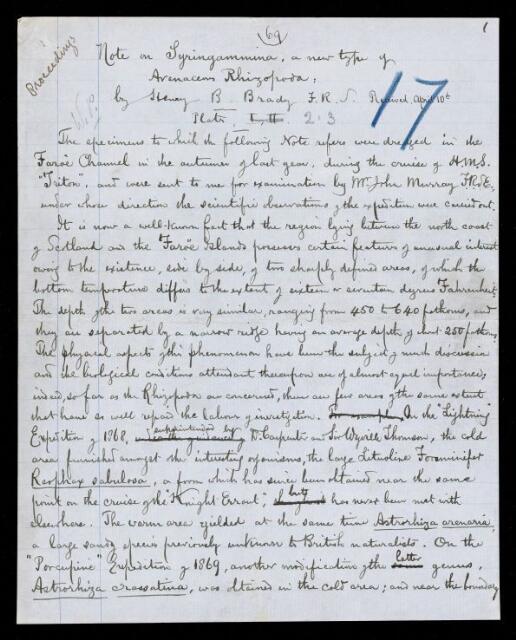 (69)
1
Proceedings
Note on Syringammina, a new type of
Arenaceous Rhizopoda,
by Henry B. Brady F.R.S. Received April 10th
17
Plates 2.3
The specimens to which the following Note refers were dredged in the
Faröe Channel in the autumn of last year, during the cruise of H.M.S.
"Triton", and were sent to me for examination by Mr. John Murray F.R.S.E.,
under whose direction the scientific observations of the expedition were carried out.
It is now a well-known fact that the region lying between the north coast
of Scotland and the Faröe Islands possesses certain features of unusual interest
owing to the existence, side by side, of two sharply defined areas, of which the
bottom temperature differs to the extent of sixteen or seventeen degrees Fahrenheit.
The depth of the two areas is very similar, ranging from 450 to 640 fathoms, and
they are separated by a narrow ridge having an average depth of about 250 fathoms.
The physical aspects of this phenomenon have been the subject of much discussion
and the biological conditions attendant thereupon are of almost equal importance;
indeed, so far as the Rhizopoda are concerned, there are few areas of the same extent
that have so well repaid the labour of investigation. On the "Lightning"
Expedition of 1868, superintended by Dr. Carpenter and Sir Wyville Thomson, the cold
area furnished amongst the interesting organisms, the large Lituoline Foraminifer
Reophax sabulosa, a form which has since been obtained near the same
point on the cruise of the "Knight Errant", but has never been met with
elsewhere. The warm area yielded at the same time Astrorhiza arenaria,
a large sandy species previously unknown to British naturalists. On the
"Porcupine" Expedition of 1869, another modification of the latter genus,
Astrorhiza crassatina, was obtained in the cold area; and near the boundary